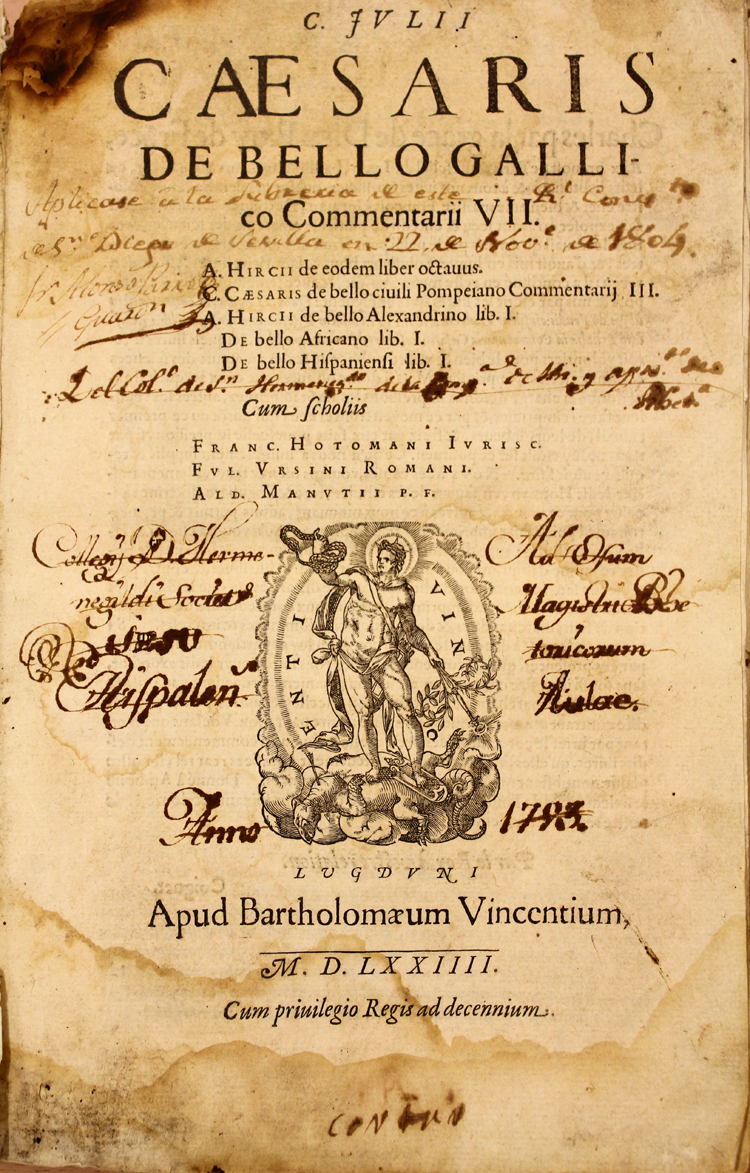 C. JVLII
CÆSARIS
DE BELLO GALLI-
Aplicase a la Libreria de este Rl. Convto
co Commentarii VII.
de Sn Diego de Sevilla en 22 de Novе. de 1804.
A. HIRCII de eodem liber octauus.
fr Alonso
C. CÆSARIS de bello ciuili Pompeiano Commentarij III.
A. HIRCII de bello Alexandrino lib. I.
Guardn
DE bello Africano lib. I.
DE bello Hiſpanienſi lib. I.
Del Colo. de Sn. Hermenegdo de la
Cum ſcholiis
FRANC. HOTOMANI IVRISC.
FVL. VRSINI ROMANI.
ALD. MANVTII P. F.
Collegij D. Herme-
negildi Societis
IESV
Hispalen
VINCENTI
Ad Vsum
Magistri Rhe
toricorum
Aulae.
Anno
LVGDVNI
Apud Bartholomæum Vincentium,
M. D. LXXIIII.
Cum priuilegio Regis ad decennium.